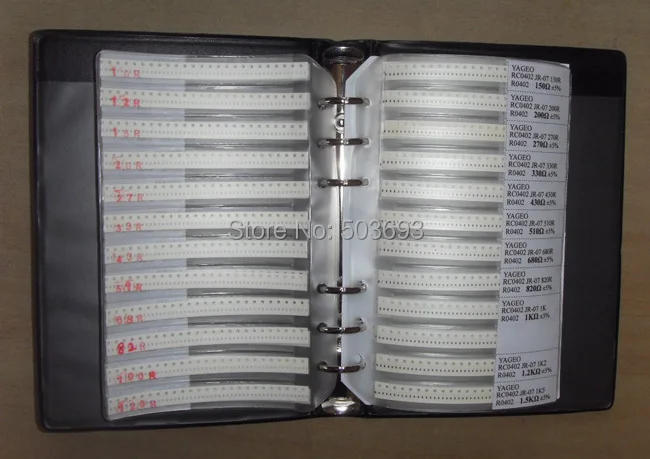 10R
12R
15R
20R
27R
39R
43R
68R
82R
100R
Store No: 503693
YAGEO
RC0402 JR-07 150R
R0402 150Ω ±5%
YAGEO
RC0402 JR-07 200R
R0402 200Ω ±5%
YAGEO
RC0402 JR-07 270R
R0402 270Ω ±5%
YAGEO
RC0402 JR-07 330R
R0402 330Ω ±5%
YAGEO
RC0402 JR-07 430R
R0402 430Ω ±5%
YAGEO
RC0402 JR-07 510R
R0402 510Ω ±5%
YAGEO
RC0402 JR-07 680R
R0402 680Ω ±5%
YAGEO
RC0402 JR-07 820R
R0402 820Ω ±5%
YAGEO
RC0402 JR-07 1K
R0402 1KΩ ±5%
YAGEO
RC0402 JR-07 1K2
R0402 1.2KΩ ±5%
YAGEO
RC0402 JR-07 1K5
R0402 1.5KΩ ±5%